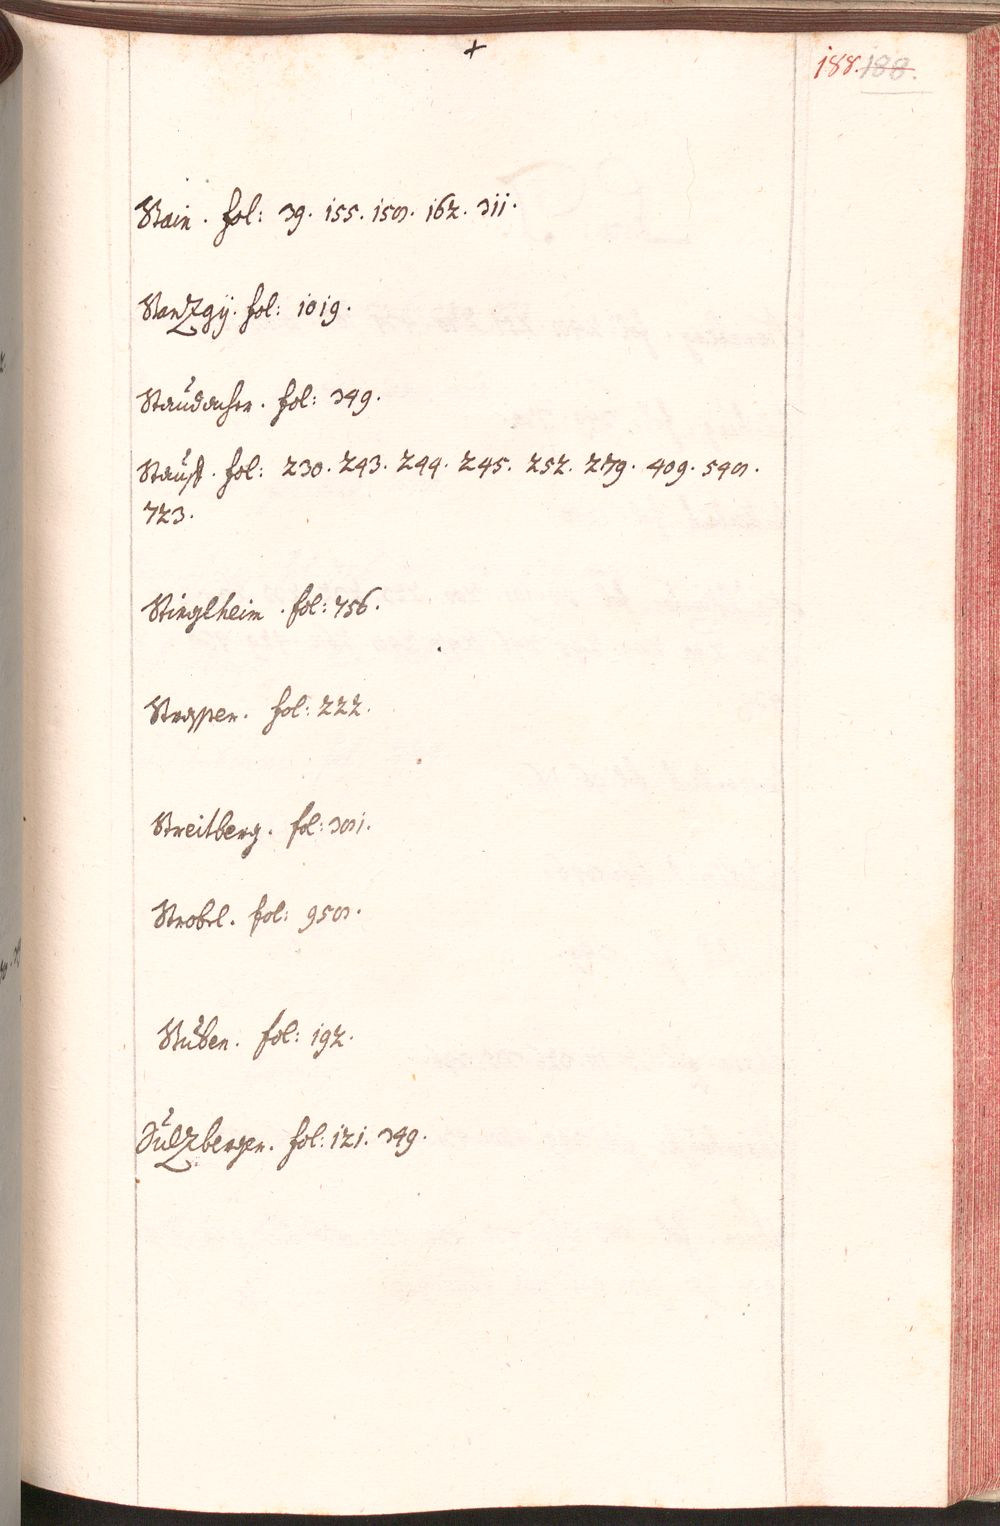 +
188. 188.
Stain. fol: 39. 155. 158. 162. 311.
Stantzgÿ. fol: 1019.
Staudacher. fol: 349.
Stauff. fol: 230. 243. 244. 245. 252. 279. 409. 548.
723.
Stinglheim. fol: 756.
Strasser. fol: 222.
Streitberg. fol: 381.
Strobel. fol: 958.
Stuben. fol: 192.
Sultzberger. fol: 121. 349.